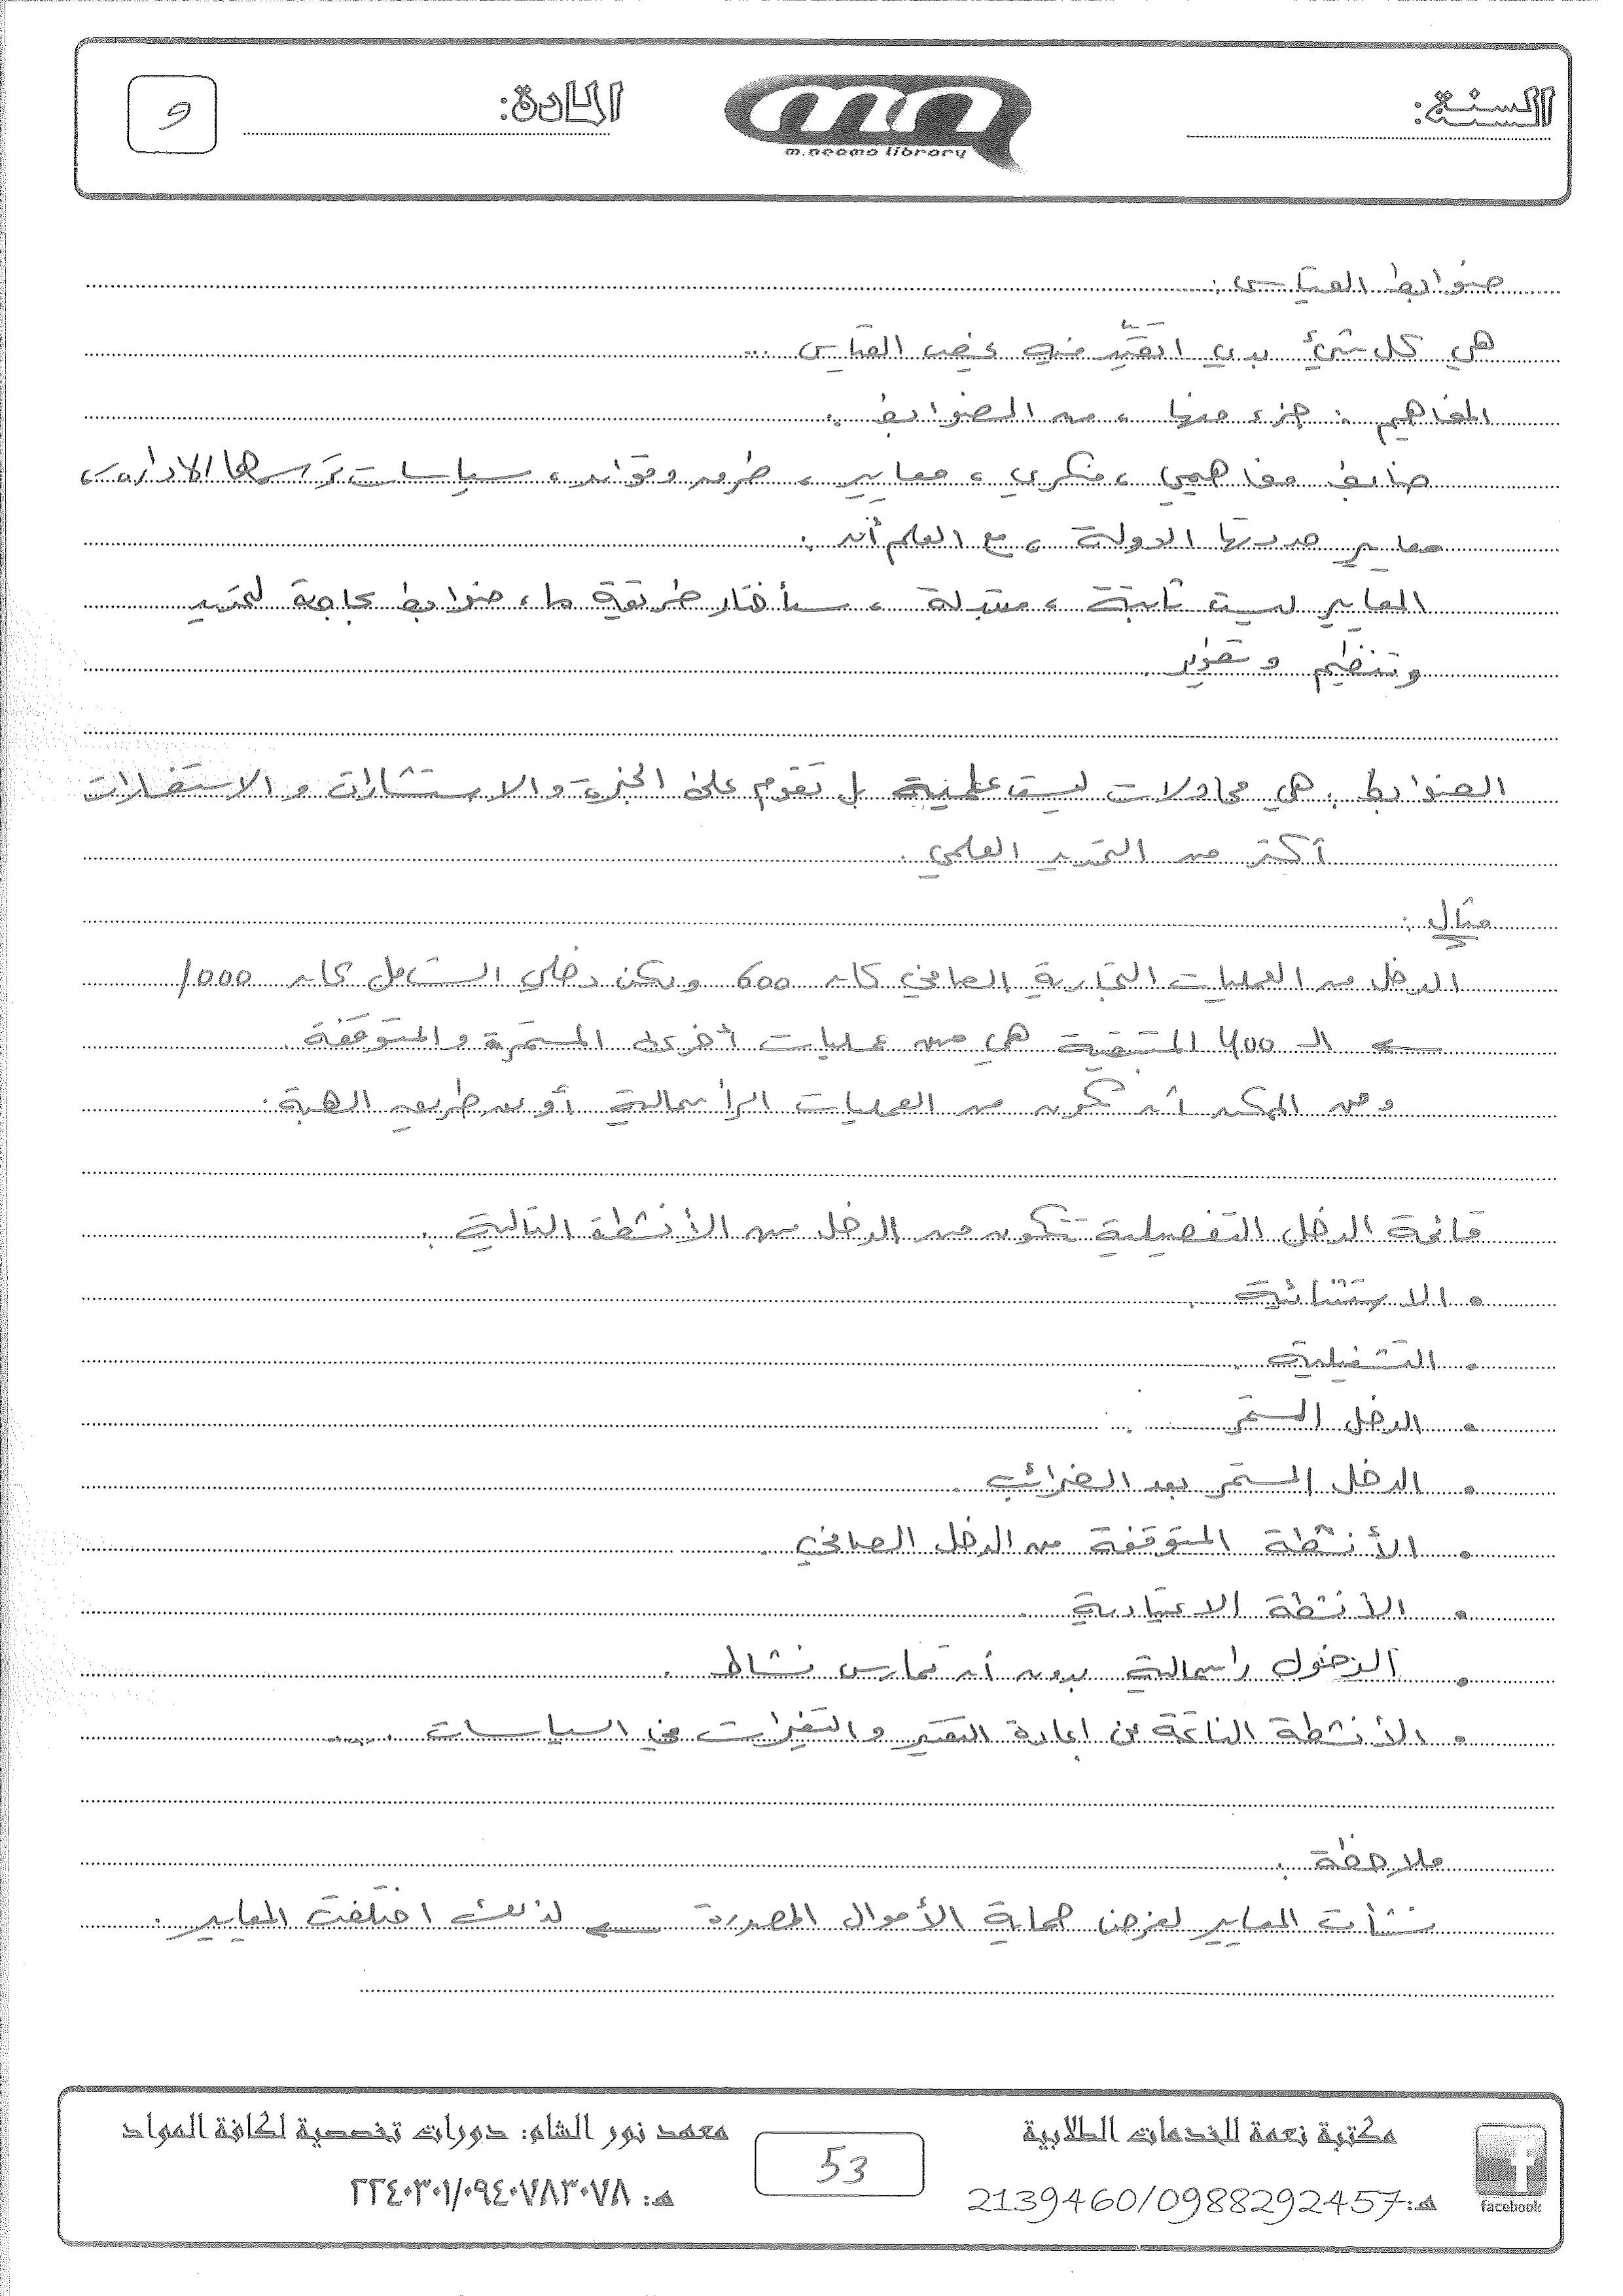 السنة:
m.neama library
المادة:
9
ضوابط القياس :
هي كل شيئ بدي اتقيّد فيه عضب القياس ...
المفاهيم : جزء منها ، من الضوابط :
ضابط مفاهيمي ، فكري ، معايير ، طرق وقواعد ، سياسات ترسمها الادارة ،
معايير حددتها الدولة ، مع العلم أن :
المعايير ليست ثابتة ، متبدلة ، سأختار طريقة ما ، ضوابط بحاجة لتحديد
وتنظيم وتطوير
الضوابط : هي محاولات ليست علمية بل تقوم على الخبرة والاستشارات والاستفسارات
أكثر من التحديد العلمي .
مثال :
الدخل من العمليات التجارية الصافي كان 600 ولكن دخلي الشامل كان 1000
← الـ 400 المتبقية هي من عمليات أخرى المستمرة والمتوقفة .
ومن الممكن أن تكون من العمليات الرأسمالية أو عن طريق الهبة .
قائمة الدخل التفصيلية تتكون من الدخل من الأنشطة التالية :
• الاستثنائية .
• التشغيلية .
• الدخل المستمر
• الدخل المستمر بعد الضرائب .
• الأنشطة المتوقفة من الدخل الصافي .
• الأنشطة الاعتيادية .
• الدخول راسمالية بدون أن تمارس نشاط .
• الأنشطة الناتجة عن اعادة التقدير والتغيرات في السياسات ......
ملاحظة :
نشأت المعايير لغرض حماية الأموال المصدرة ← لذلك اختلفت المعايير .
مكتبة نعمة للخدمات الطلابية
هـ: 2139460/0988292457
53
معهد نور الشام: دورات تخصصية لكافة المواد
هـ: ٢٢٤٠٣٠١/٠٩٤٠٧٨٣٠٧٨
facebook